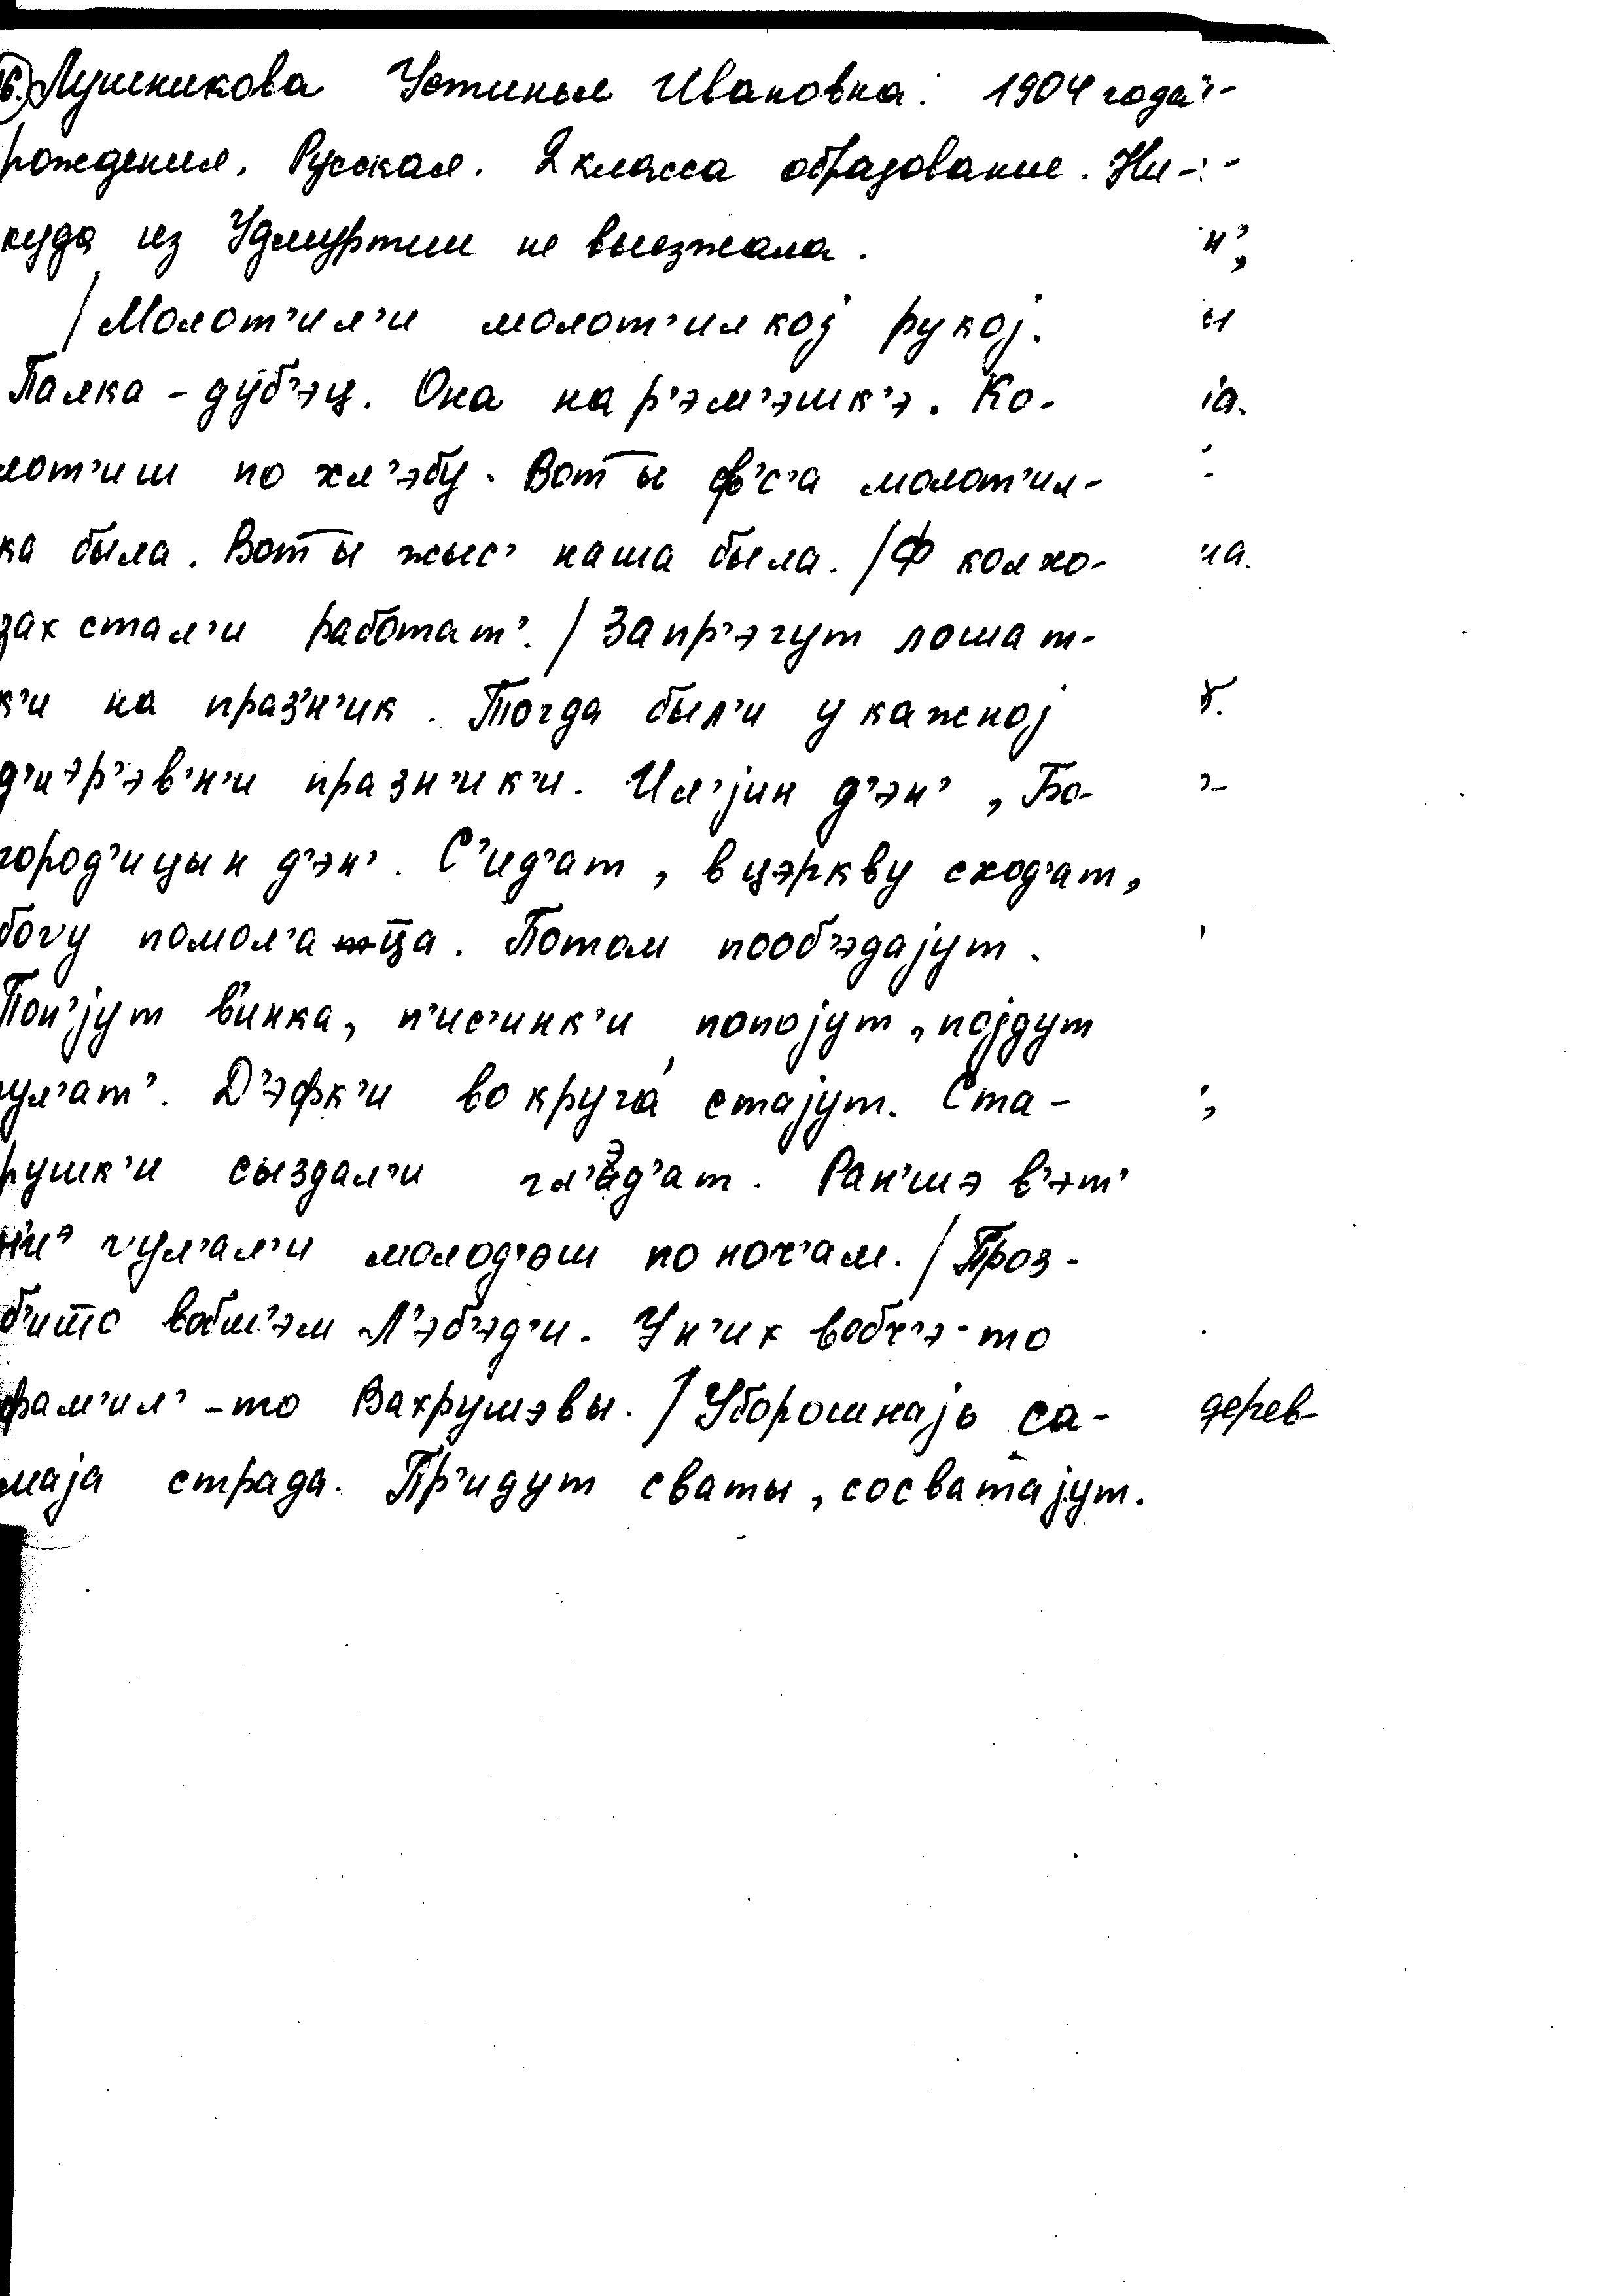 16. Лушникова Устинья Ивановна. 1904 года
рождения. Русская. 2 класса образование. Ни-
куда из Удмуртии не выезжала.
/Молот'ил'и молот'илкоj рукоj.
Палка - дуб'эц. Она на р'эм'эшк'э. Ко-
лот'иш по хл'эбу. Вот ы ф'с'а молот'ил-
ка была. Вот ы жыс' наша была. /Ф колхо-
зах стал'и работат'. / Запр'эгут лошат-
к'и на праз'н'ик. Тогда был'и у кажноj
д'иэр'эв'н'и празн'ик'и. Ил'jин д'эн', Бо-
город'ицын д'эн'. С'ид'ат, в цэркву сход'ат,
богу помол'а ца. Потом пооб'эдаjут.
Поп'jут в'инка, п'ис'инк'и попоjут, поjдут
гул'ат'. Д'эфк'и во круга́ стаjут. Ста-
рушк'и сыздал'и гл'эд'ат. Ран'шэ в'эт'
н'иэ гул'ал'и молод'ош по ноч'ам. / Проз-
б'ито вобш'эм Л'эб'эд'и. У н'их вобч'э-то
фам'ил'-то Вахрушэвы. / Уборошнаjь са-
маjа страда. Пр'идут сваты, сосватаjут.
дерев-